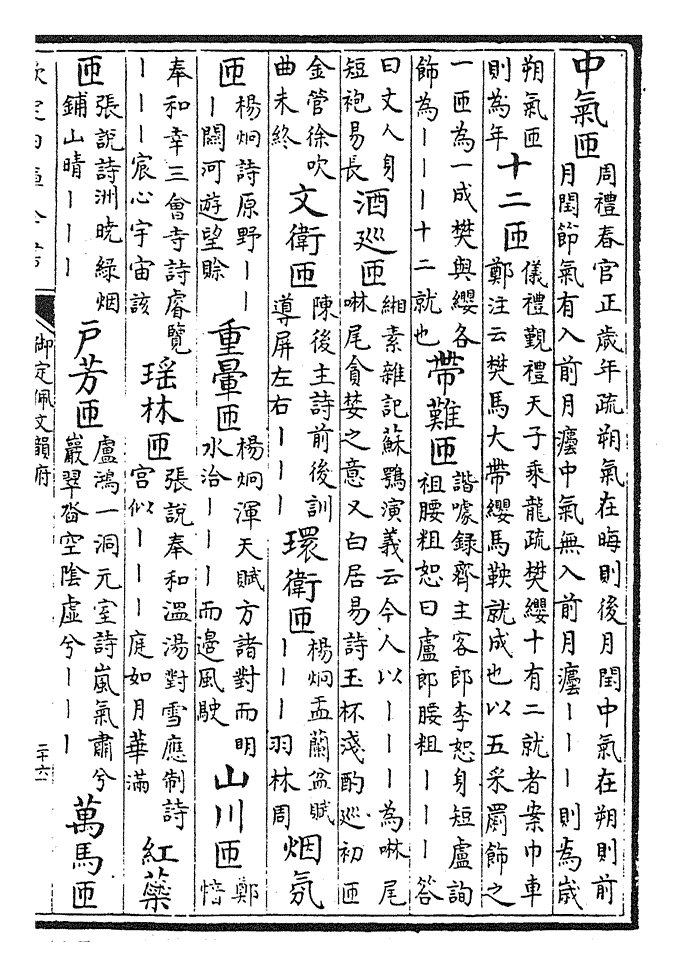 中氣匝周禮春官正歲年疏朔氣在晦則後月閏中氣在朔則前月閏節氣有入前月灋中氣無入前月灋丨丨丨則為歲
朔氣匝則為年十二匝儀禮覲禮天子乘龍疏樊纓十有二就者案巾車鄭注云樊馬大帶纓馬鞅就成也以五采罽飾之
一匝為一成樊與纓各飾為丨丨丨十二就也帶難匝諧噱録齊主客郎李恕身短盧詢祖腰粗恕曰盧郎腰粗丨丨丨答
曰丈人身短袍易長酒廵匝緗素雜記蘇鶚演義云今人以丨丨丨為啉尾啉尾貪婪之意又白居易詩玉杯淺酌廵初匝
金管徐吹曲未終文衛匝陳後主詩前後訓導屏左右丨丨丨環衛匝楊炯盂蘭盆賦丨丨丨羽林周烟氛
匝楊炯詩原野丨丨丨關河遊望賖重暈匝楊炯渾天賦方諸對而明水洽丨丨丨而邉風駛山川匝鄭愔
奉和幸三會寺詩睿覽丨丨丨宸心宇宙該瑶林匝張說奉和溫湯對雪應制詩宫似丨丨丨庭如月華滿紅藥
匝張說詩洲曉綠烟鋪山晴丨丨丨戶芳匝盧鴻一洞元室詩嵐氣肅兮巖翠沓空陰虛兮丨丨丨萬馬匝
欽定四庫全書 御定佩文韻府 二十六